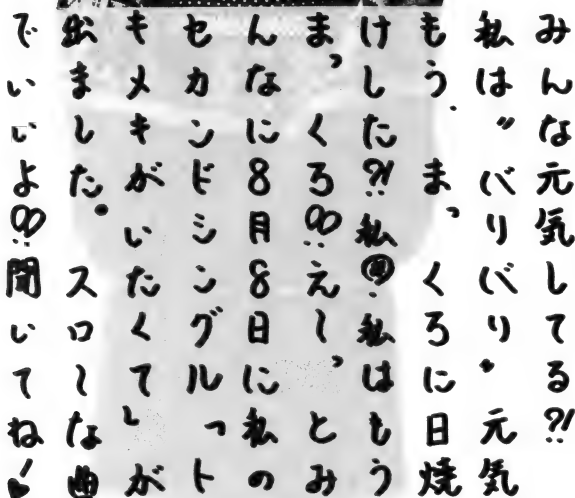 みんな元気してる?!
私は〝バリバリ〟元気
もう、まっくろに日焼
けした?!私 私はもう
まっくろ!!え〜、とみ
んなに8月8日に私の
セカンドシングル「ト
キメキがいたくて」が
出ました。スローな曲
でいいよ!!聞いてね!